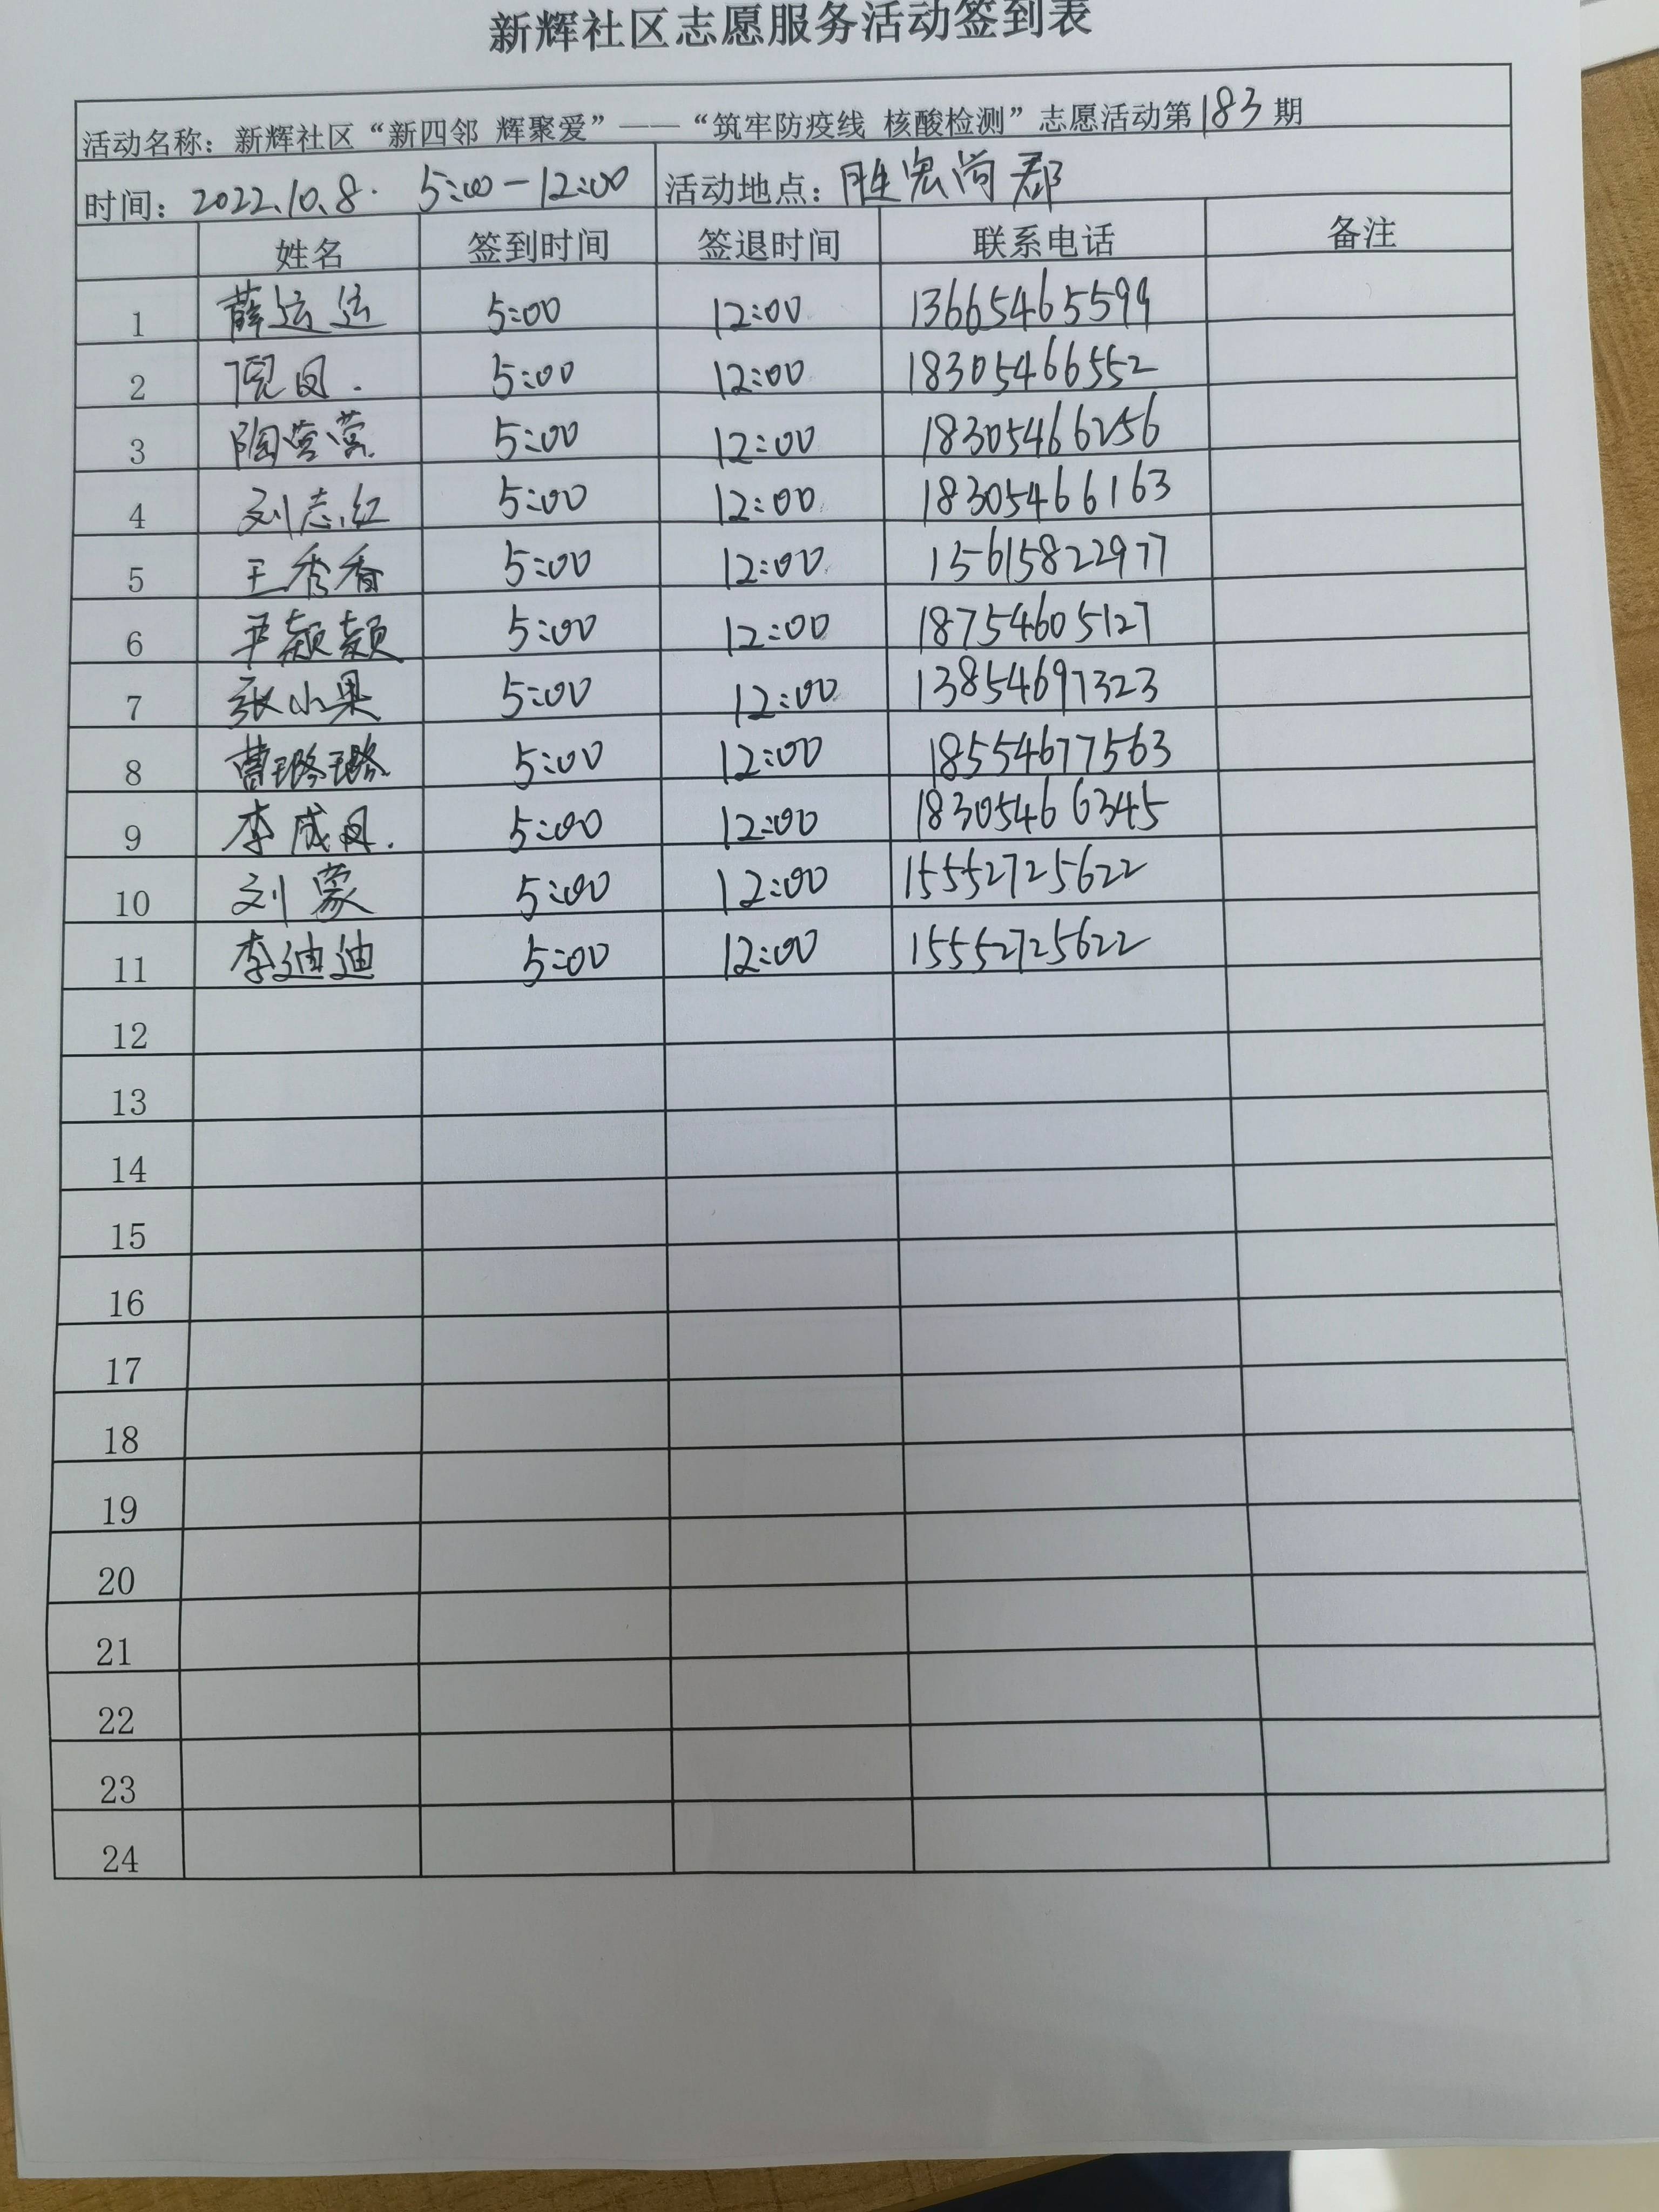 新辉社区志愿服务活动签到表
活动名称：新辉社区“新四邻 辉聚爱”——“筑牢防疫线 核酸检测”志愿活动第183期
时间：2022.10.8. 5:00-12:00 活动地点：胜宏尚郡
姓名 签到时间 签退时间 联系电话 备注
1 薛运运 5:00 12:00 13665465599
2 倪凤. 5:00 12:00 18305466552
3 陶营营 5:00 12:00 18305466256
4 刘志红 5:00 12:00 18305466163
5 王秀香 5:00 12:00 15615822977
6 尹颖颖 5:00 12:00 18754605127
7 张小果 5:00 12:00 13854697323
8 曹璐璐 5:00 12:00 18554677563
9 李成凤. 5:00 12:00 18305466345
10 刘蒙 5:00 12:00 15552725622
11 李迪迪 5:00 12:00 15552725622
12
13
14
15
16
17
18
19
20
21
22
23
24